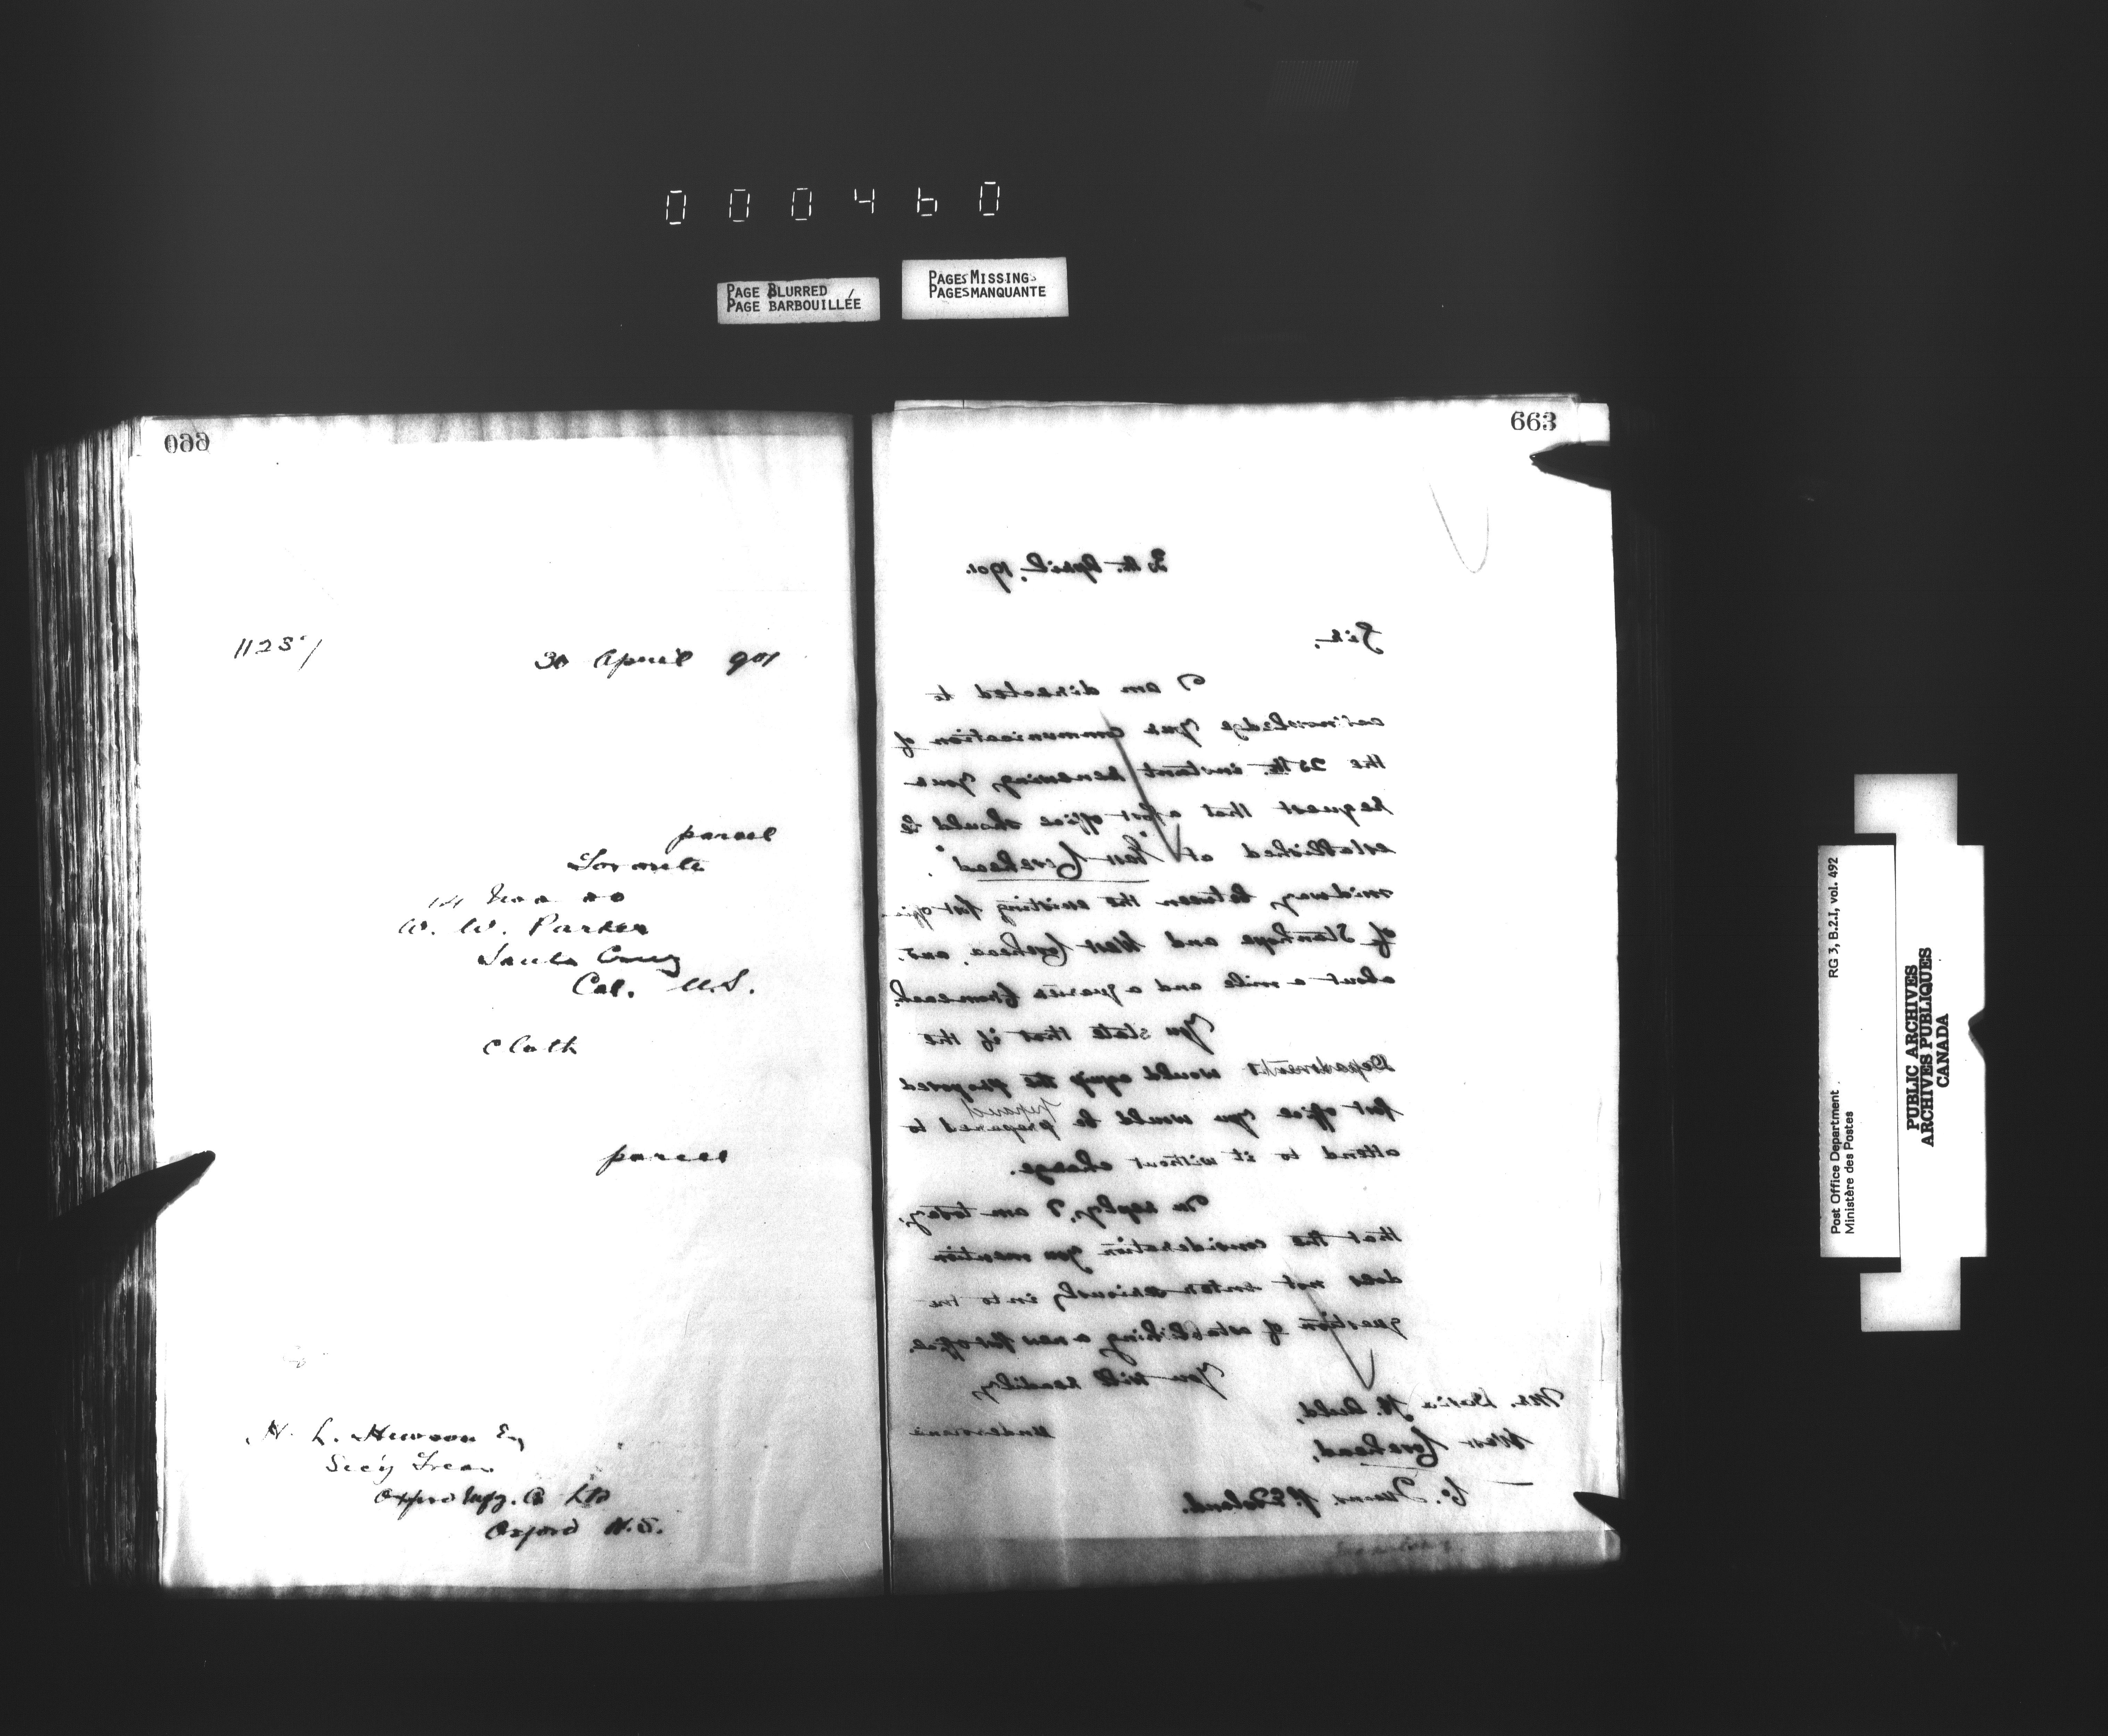 000460
PAGE BLURRED
PAGE BARBOUILLÉE
PAGES MISSING
PAGES MANQUANTE
660
11237
30 April 901
parcel
Toronto
W. W. Parker
Santa Cruz
Cal. U.S.
Cloth
parcel
H. L. Hewson Esq
Sec'y Treas
Oxford Mfg. Co Ltd
Oxford N.S.
663
30th. April, 1901.
Sir,
I am directed to
acknowledge your communication of
the 25th. instant renewing your
request that a post office should be
established at "West Covehead",
midway between the existing post
of Stanhope and West Covehead, and
about a mile and a quarter from each.
You state that if the
Department would equip the proposed
post office you would be prepared to
attend to it without charge.
In reply, I am to say,
that the consideration you mention
does not enter seriously into the
question of establishing a new post office.
You will readily
understand
Mr. David H. Auld,
West Covehead,
Co. Queens, P. E. Island.
Post Office Department
Ministère des Postes
RG 3, B.2.I, vol. 492
PUBLIC ARCHIVES
ARCHIVES PUBLIQUES
CANADA